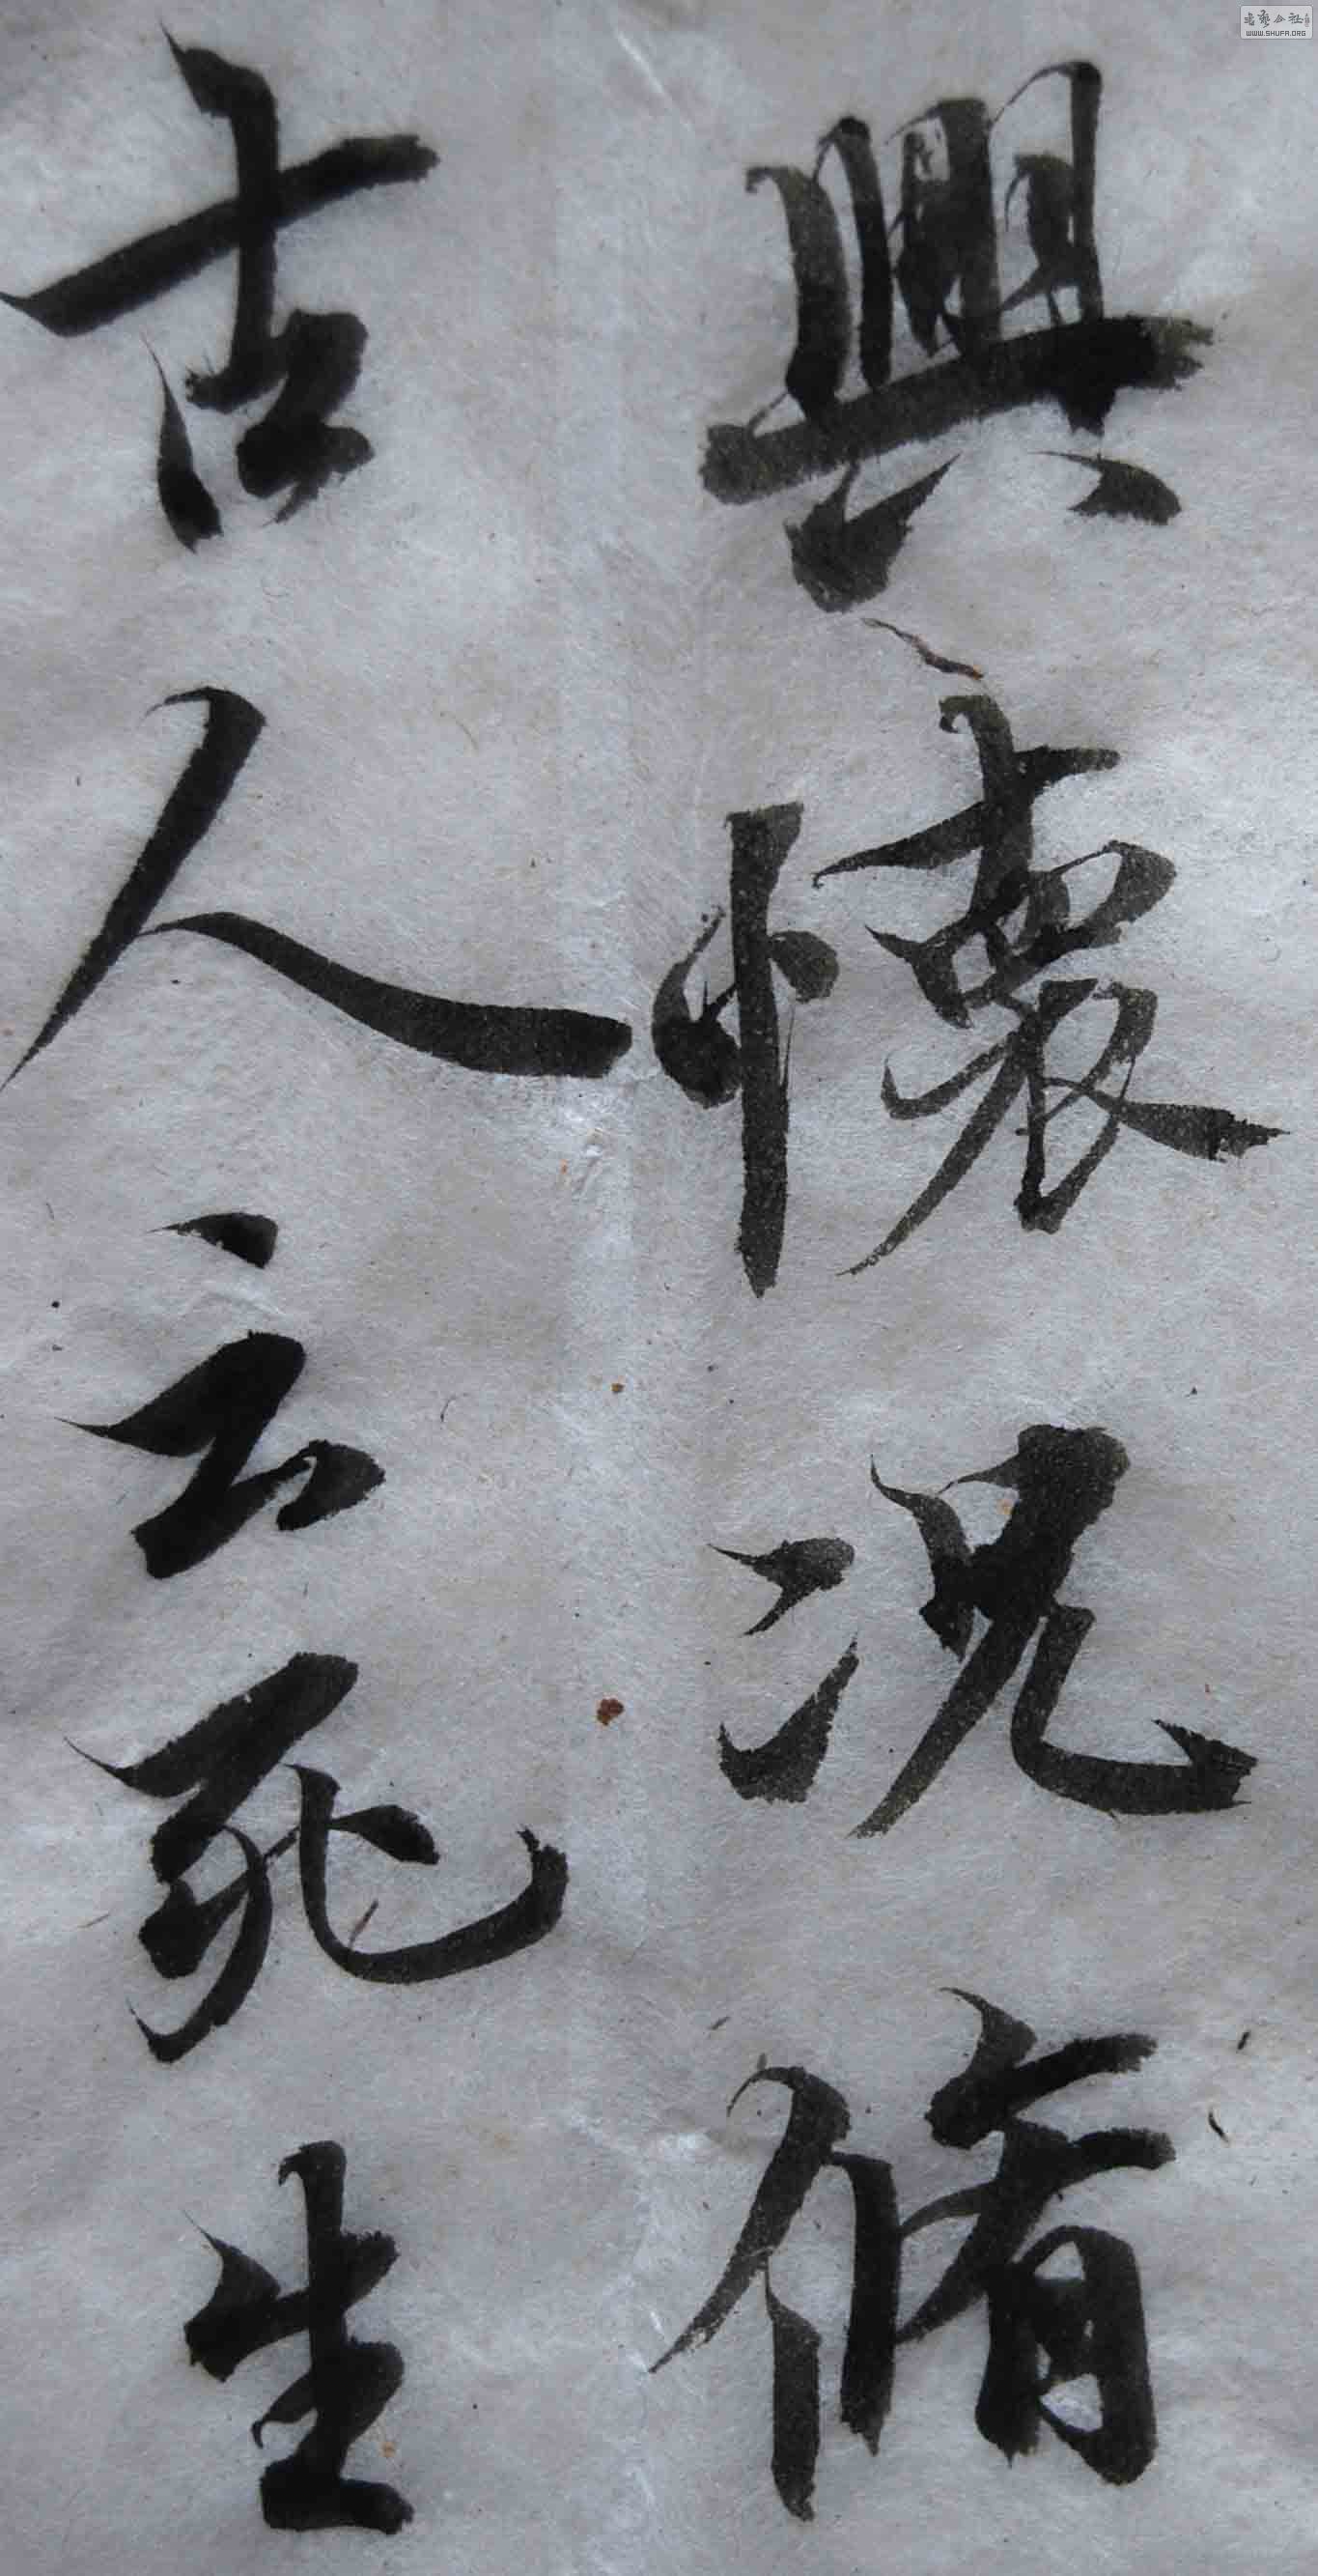 興懷況脩
古人云死生
WWW.SHUFA.ORG